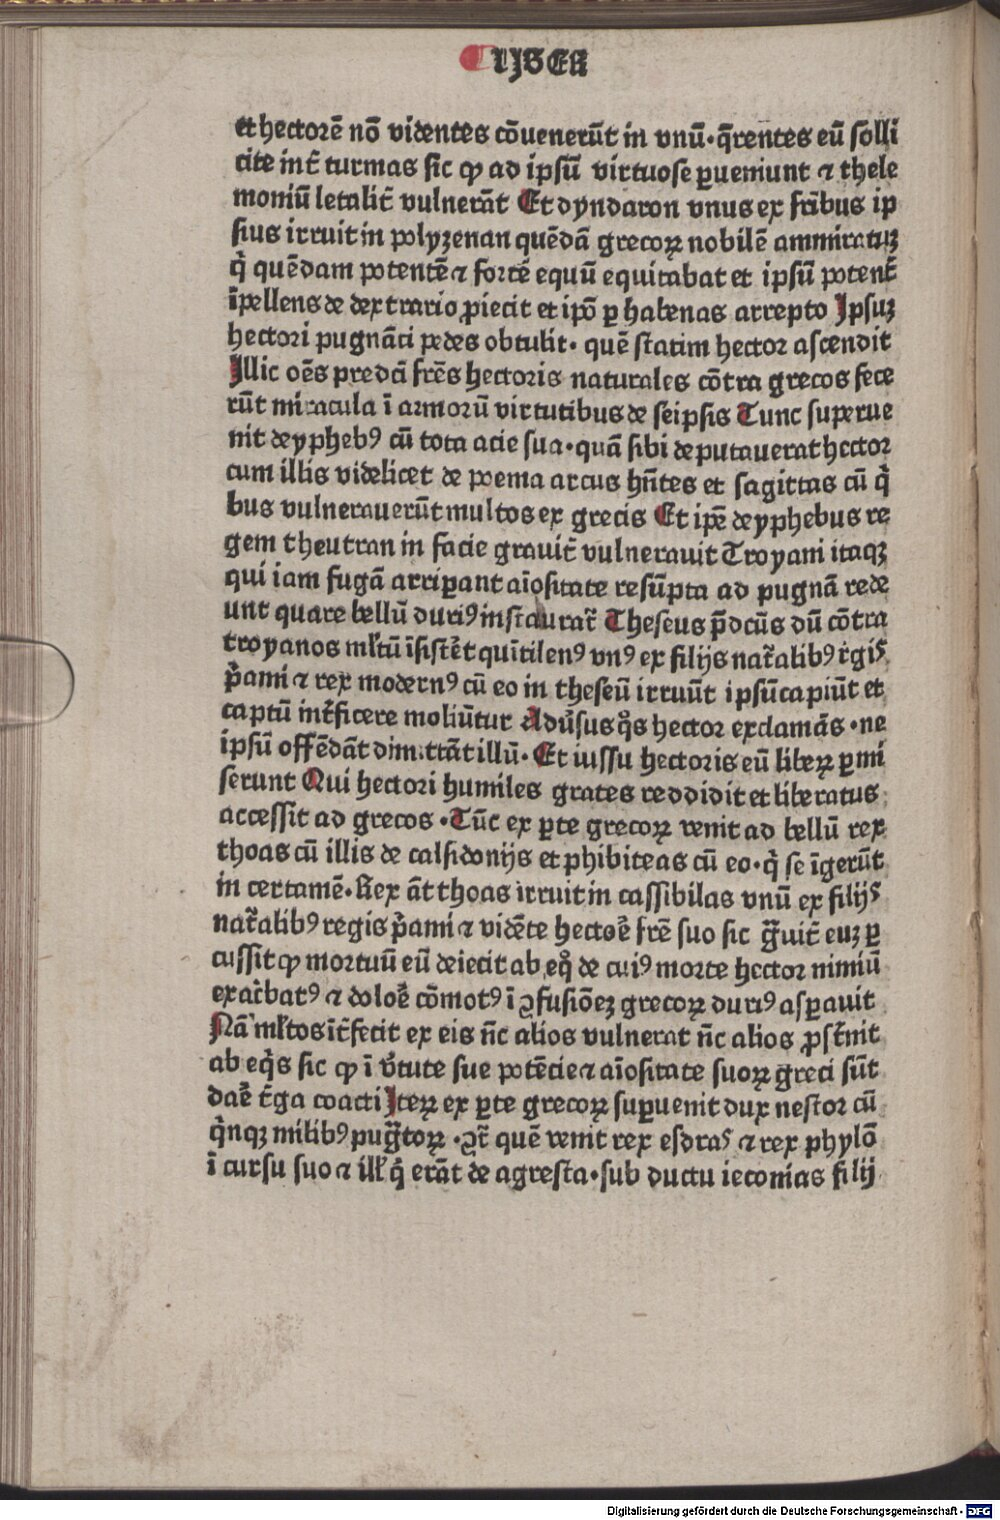 LIBER
et hectorē nō videntes cōuenerūt in vnū·q̄rentes eū solli
cite int̄ turmas sic ꝙ ad ipsū virtuose ꝑueniunt ⁊ thele
moniū letalit̄ vulnerāt Et dyndaron vnus ex fr̄ibus ip
sius irruit in polyzenan quēdā grecoꝝ nobilē ammiratuꝫ
q̇ quēdam potentē ⁊ fortē equū equitabat et ipsū potent̄
īpellens de dextrario ꝓiecit et ip̄o ꝑ habenas arrepto Ipsuꝫ
hectori pugnāti pedes obtulit· quē statim hector ascendit
Illic oēs predc̄i fr̄es hectoris naturales cōtra grecos fece
rūt miracula ī armorū virtutibus de seipsis Tunc superue
nit deyphebꝰ cū tota acie sua·quā sibi deputauerat hector
cum illis videlicet de poema arcus hn̄tes et sagittas cū q̇
bus vulnerauerūt multos ex grecis Et ip̄e deyphebus re
gem theutran in facie grauit̄ vulnerauit Troyani itaqꝫ
qui iam fugā arriꝑant aīositate resūpta ad pugnā rede
unt quare bellū duriꝰ instaurat̄ Theseus p̄dcūs dū cōtra
troyanos ml̄tū īsistēt quītilenꝰ vnꝰ ex filijs nat̄alibꝰ rēgiˢ
p̄ami ⁊ rex modernꝰ cū eo in theseū irruūt ipsū capiūt et
captū int̄ficere moliūtur Adūsus q̊s hector exclamās ·ne
ipsū offēdāt dimittāt illū· Et iussu hectoris eū liberꝝ ꝑmi
serunt Qui hectori humiles grates reddidit et liberatus
accessit ad grecos ·Tūc ex ꝑte grecoꝝ venit ad bellū rex
thoas cū illis de calsidonijs et phibiteas cū eo·q̇ se īgerūt
in certamē·Rex āt thoas irruit in cassibilas vnū ex filijˢ
nat̄alibꝰ regis p̄ami ⁊ vidēte hectoē frē suo sic g̈uit̄ euꝫ ꝑ
cussit ꝙ mortuū eū deiecit ab eq̊ de cuiꝰ morte hector nimiū
exac̄batꝰ ⁊ doloē cōmotꝰ ī ꝯfusiōeꝫ grecoꝝ duriꝰ asꝑauit
Nā ml̄tos īt̄fecit ex eis n̄c alios vulnerat n̄c alios ꝓst̄nit
ab eq̇s sic ꝙ ī v̄tute sue potēcie ⁊ aīositate suoꝝ greci sūt
daē t̄ga coacti Iterꝝ ex ꝑte grecoꝝ suꝑuenit dux nestor cū
q̇nqꝫ milibꝰ pug̈toꝝ ·ꝯt̄ quē venit rex esdraˢ ⁊ rex phylō
ī cursu suo ⁊ ill̄ q̇ erāt de agresta·sub ductu ieconias filij
Digitalisierung gefördert durch die Deutsche Forschungsgemeinschaft - DFG